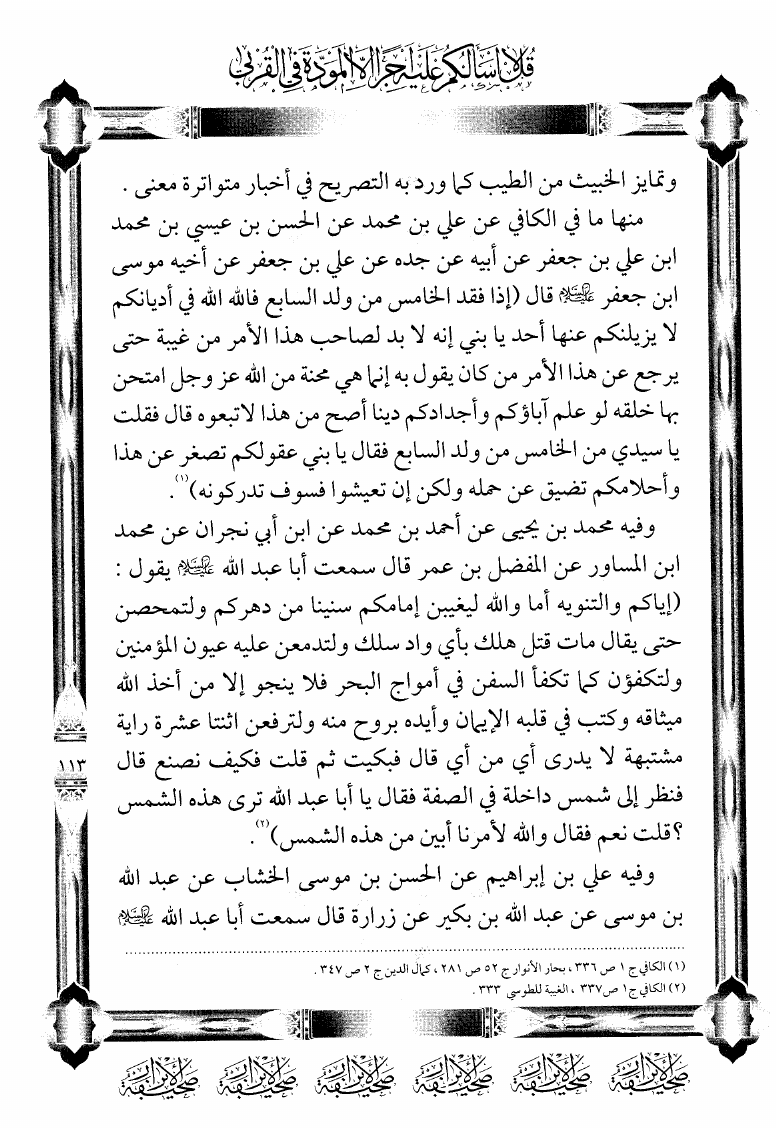 قل لا أسألكم عليه أجرا إلا المودة في القربى
وتمايز الخبيث من الطيب كما ورد به التصريح في أخبار متواترة معنى .
منها ما في الكافي عن علي بن محمد عن الحسن بن عيسي بن محمد
ابن علي بن جعفر عن أبيه عن جده عن علي بن جعفر عن أخيه موسى
ابن جعفر عليه السلام قال (إذا فقد الخامس من ولد السابع فالله الله في أديانكم
لا يزيلنكم عنها أحد يا بني إنه لا بد لصاحب هذا الأمر من غيبة حتى
يرجع عن هذا الأمر من كان يقول به إنما هي محنة من الله عز وجل امتحن
بها خلقه لو علم آباؤكم وأجدادكم دينا أصح من هذا لاتبعوه قال فقلت
يا سيدي من الخامس من ولد السابع فقال يا بني عقولكم تصغر عن هذا
وأحلامكم تضيق عن حمله ولكن إن تعيشوا فسوف تدركونه)(١).
وفيه محمد بن يحيى عن أحمد بن محمد عن ابن أبي نجران عن محمد
ابن المساور عن المفضل بن عمر قال سمعت أبا عبد الله عليه السلام يقول :
(إياكم والتنويه أما والله ليغيبن إمامكم سنينا من دهركم ولتمحصن
حتى يقال مات قتل هلك بأي واد سلك ولتدمعن عليه عيون المؤمنين
ولتكفؤن كما تكفأ السفن في أمواج البحر فلا ينجو إلا من أخذ الله
ميثاقه وكتب في قلبه الإيمان وأيده بروح منه ولترفعن اثنتا عشرة راية
مشتبهة لا يدرى أي من أي قال فبكيت ثم قلت فكيف نصنع قال
فنظر إلى شمس داخلة في الصفة فقال يا أبا عبد الله ترى هذه الشمس
؟قلت نعم فقال والله لأمرنا أبين من هذه الشمس)(٢).
وفيه علي بن إبراهيم عن الحسن بن موسى الخشاب عن عبد الله
بن موسى عن عبد الله بن بكير عن زرارة قال سمعت أبا عبد الله عليه السلام
١١٣
(١) الكافي ج ١ ص ٣٣٦ ، بحار الأنوار ج ٥٢ ص ٢٨١ ، كمال الدين ج ٢ ص ٣٤٧ .
(٢) الكافي ج١ ص٣٣٧ ، الغيبة للطوسي ٣٣٣ .
صحيفة الأبرار صحيفة الأبرار صحيفة الأبرار صحيفة الأبرار صحيفة الأبرار صحيفة الأبرار